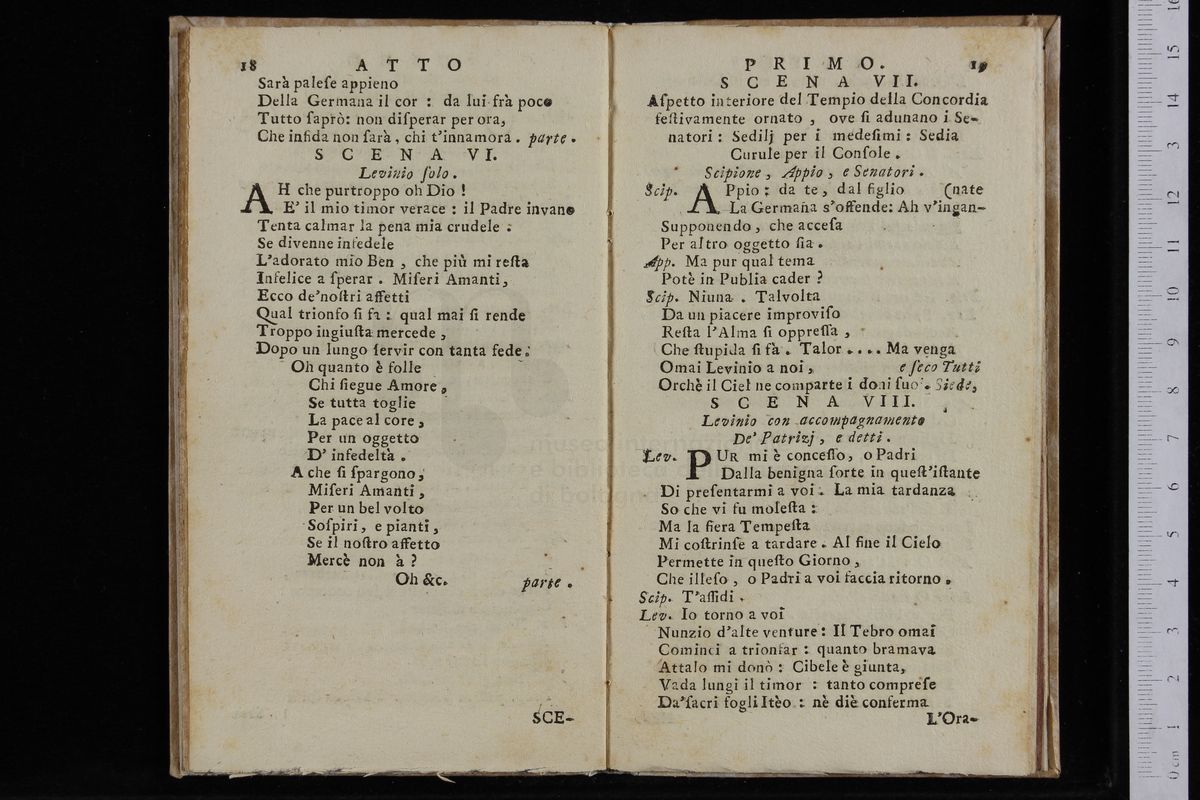 18 ATTO
Sarà paleſe appieno
Della Germana il cor : da lui frà poco
Tutto ſaprò: non diſperar per ora,
Che infida non ſarà, chi t'innamora . parte .
SCENA VI.
Levinio ſolo .
AH che purtroppo oh Dio !
E' il mio timor verace : il Padre invano
Tenta calmar la pena mia crudele :
Se divenne infedele
L'adorato mio Ben , che più mi reſta
Infelice a ſperar . Miſeri Amanti,
Ecco de'noſtri affetti
Qual trionfo ſi fà : qual mai ſi rende
Troppo ingiuſta mercede ,
Dopo un lungo ſervir con tanta fede.
Oh quanto è folle
Chi ſiegue Amore ,
Se tutta toglie
La pace al core ,
Per un oggetto
D' infedeltà .
A che ſi ſpargono,
Miſeri Amanti ,
Per un bel volto
Soſpiri, e pianti,
Se il noſtro affetto
Mercè non à ?
Oh &c. parte .
SCE-
PRIMO. 19
SCENA VII.
Aſpetto interiore del Tempio della Concordia
feſtivamente ornato , ove ſi adunano i Se-
natori : Sedilj per i medeſimi : Sedia
Curule per il Conſole .
Scipione , Appio , e Senatori .
Scip. APpio : da te, dal figlio (nate
La Germana s'offende: Ah v'ingan-
Supponendo , che acceſa
Per altro oggetto ſia .
App. Ma pur qual tema
Potè in Publia cader ?
Scip. Niuna . Talvolta
Da un piacere improviſo
Reſta l'Alma ſi oppreſſa ,
Che ſtupida ſi fà . Talor .... Ma venga
Omai Levinio a noi , e ſeco Tutti
Orchè il Ciel ne comparte i doni ſuoi. Siede,
SCENA VIII.
Levinio con accompagnamento
De' Patrizj , e detti .
Lev. PUR mi è conceſſo, o Padri
Dalla benigna ſorte in queſt'iſtante
Di preſentarmi a voi . La mia tardanza
So che vi fu moleſta :
Ma la fiera Tempeſta
Mi coſtrinſe a tardare . Al fine il Cielo
Permette in queſto Giorno ,
Che illeſo , o Padri a voi faccia ritorno .
Scip. T'aſſidi .
Lev. Io torno a voi
Nunzio d'alte venture : Il Tebro omai
Cominci a trionfar : quanto bramava
Attalo mi donò : Cibele è giunta,
Vada lungi il timor : tanto compreſe
Da'ſacri fogli Itèo : nè diè conferma
L'Ora-